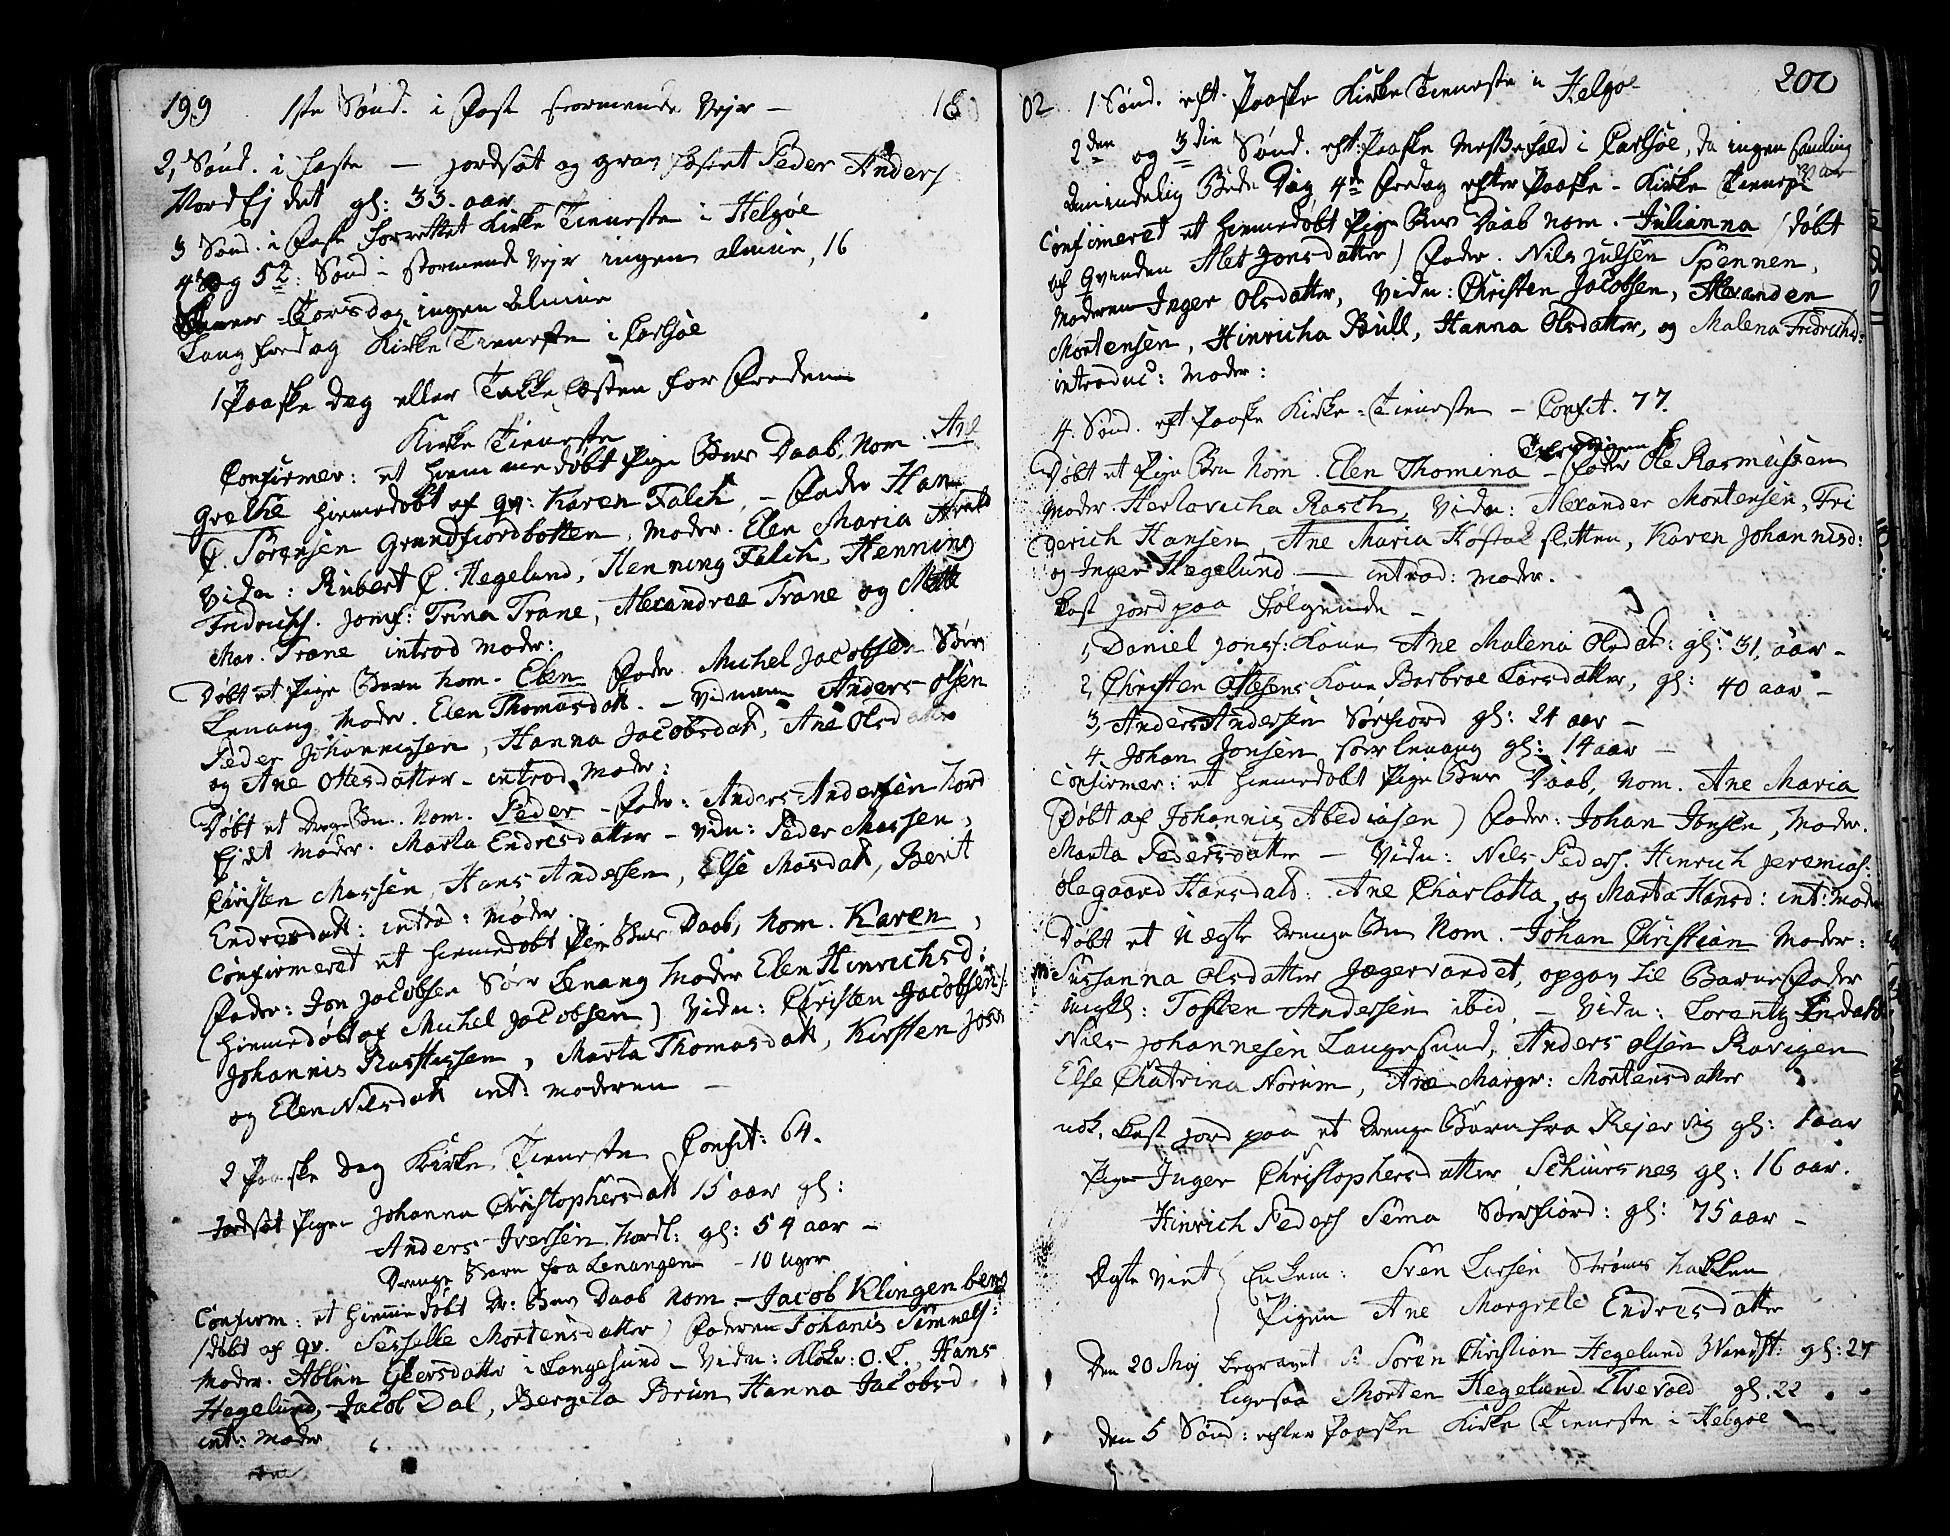 199 1ste Sønd. i Fast stormende Vejr — 18
2, Sønd. i faste — jordsat og grav fæstet Peder Anders
Nord Ejdet gl: 33. aar
3 Sønd. i Faste forrettet Kirke Tieneste i Helgøe
4de og 5te: Sønd i stormende Vejr ingen almue, 16
Torsdag ingen Almue
Lang fredag Kirke Tieneste i Carlsøe
1 Paaske Dag eller Takke festen for Freden
Kirke Tieneste
Confirmer: et hiemmedøbt Pige Bns Daab, Nom. Ane
Grethe hiemedøbt af qv: Karen Falch, — Fader Hans
P. Sørensen Grundfiordbotten, Moder. Elen Maria
Vidn: Rubert P. Hegelund, Henning Falch, Henning
Fridrichs. Jomf: Trina Trane, Alexandrea Trane og Mette
Mar. Trane introd Moder:
Døbt et Pige Barn Nom. Elen Fader Michel Jacobsen Sør
Lenang Moder. Elen Thomasdatt. — Vidnerne Anders Olsen
Peder Johannissen, Hanna Jacobsdatt, Ane Olsdatter
og Ane Ottesdatter — introd Moder:
Døbt et Drenge Bn. Nom. Peder — Fader: Anders Andersen Nord
Ejdet Moder. Marta Endresdatter — Vidn: Peder Massen,
Christen Massen, Hans Andersen, Else Masdatt, Berit
Endresdatt: introd: Moder.
Confirmeret et hiemedøbt Pige Bns Daab, Nom. Karen,
Fader: Jon Jacobsen Sør Lenang Moder Elen Hinrichsd:
(hiemedøbt af Michel Jacobsen) Vidn: Christen Jacobsen,
Johannis Rasmussen, Marta Thomasdatt, Kirsten Jons
og Elen Nilsdatt int: moderen —
2 Paaske Dag Kirke Tieneste Confit: 64.
Jordsat Pigen Johanna Christophersdatt 15 aar gl:
Anders Iversen Nordl: gl: 54 aar —
Drenge Barn fra Lenangen — 10 uger
Confirm: et hiemedøbt Dr: Bns Daab Nom. Jacob Klingenberg
(døbt af qv. Sesselle Mortensdatter) Faderen Johanis Samuels:
Moder. Ablun Geersdatter i Langesund — Vidn: Klokr: O. L., Hans
Hegelund, Jacob Dal, Bergita Brun, Hanna Jacobsd
int: Moder

02 1 Sønd. eft. Paaske Kirke Tieneste i Helgøe 200
2den og 3die Sønd. eft: Paaske Messefald i Carlsøe, da ingen samling
var
Almindelig Bede Dag, 4de Fredag efter Paaske — Kirke Tieneste
Confirmeret et hiemedøbt Pige Bns Daab Nom. Julianna (døbt
af Qvinden Alet Jonsdatter) Fader. Nils Julsen Spennen,
Moderen Inger Olsdatter, Vidn: Christen Jacobsen, Alexander
Mortensen, Hinricha Bull, Hanna Olsdatter, og Malena Fridrichs:
introduc: Moder:
4. Sønd. eft Paaske Kirke-Tieneste — Confit. 77.
Døbt et Pige Bn Nom. Elen Thomina — Fader Ole Rasmussen
Moder. Herlovicha Rasch, Vidn: Alexander Mortensen, Fri
derich Hansen, Ane Maria Hofsletten, Karen Johannisd:
og Inger Hegelund — introd: moder.
Kast jord paa følgende —
1, Daniel Jons: Kone Ane Malena Olsdat: gl: 31, aar —
2, Christen Olsens Kone Barbroe Larsdatter, gl: 40 aar —
3, Anders Andersen Sørfiord gl: 24 aar —
4. Johan Jonsen Sør Lenang gl: 14 aar —
Confirmer: et hiemedøbt Pige Bns Daab, Nom. Ane Maria
(Døbt af Johannis Abediasen) Fader: Johan Jonsen, Moder.
Marta Pedersdatter — Vidn: Nils Peders. Hinrich Jeremias:
Olegaard Hansdatd: Ane Charlotta, og Marta Hansd: int: Moder
Døbt et Uægte Drenge Bn Nom. Johan Christian Moder:
Susanna Olsdatter Jægervandet, opgav til Barne Fader
ungkl: Tosten Andersen ibid. — Vidn: Lorentz
Nils Johannesen Langesund, Anders Olsen Ravigen
Else Chatrina Norum, Ane Margr: Mortensdatter
nok. Kast jord paa et Drenge Barn fra Rejervig gl: 1 aar
Pigen Inger Christophersdatter Schiursnes gl: 16 aar.
Hinrich Peders Sema Sørfiord: gl: 75 aar —
Ægte viet Enkem: Sven Larsen Strøms hallen
Pigen Ane Margrete Endresdatter
Den 20 Maj begravet Sr Søren Christian Hegelund gl: 27
ligesaa Morten Hegelund Elvevold gl. 22
Den 5 Sønd: efter Paaske Kirke Tieneste i Helgøe